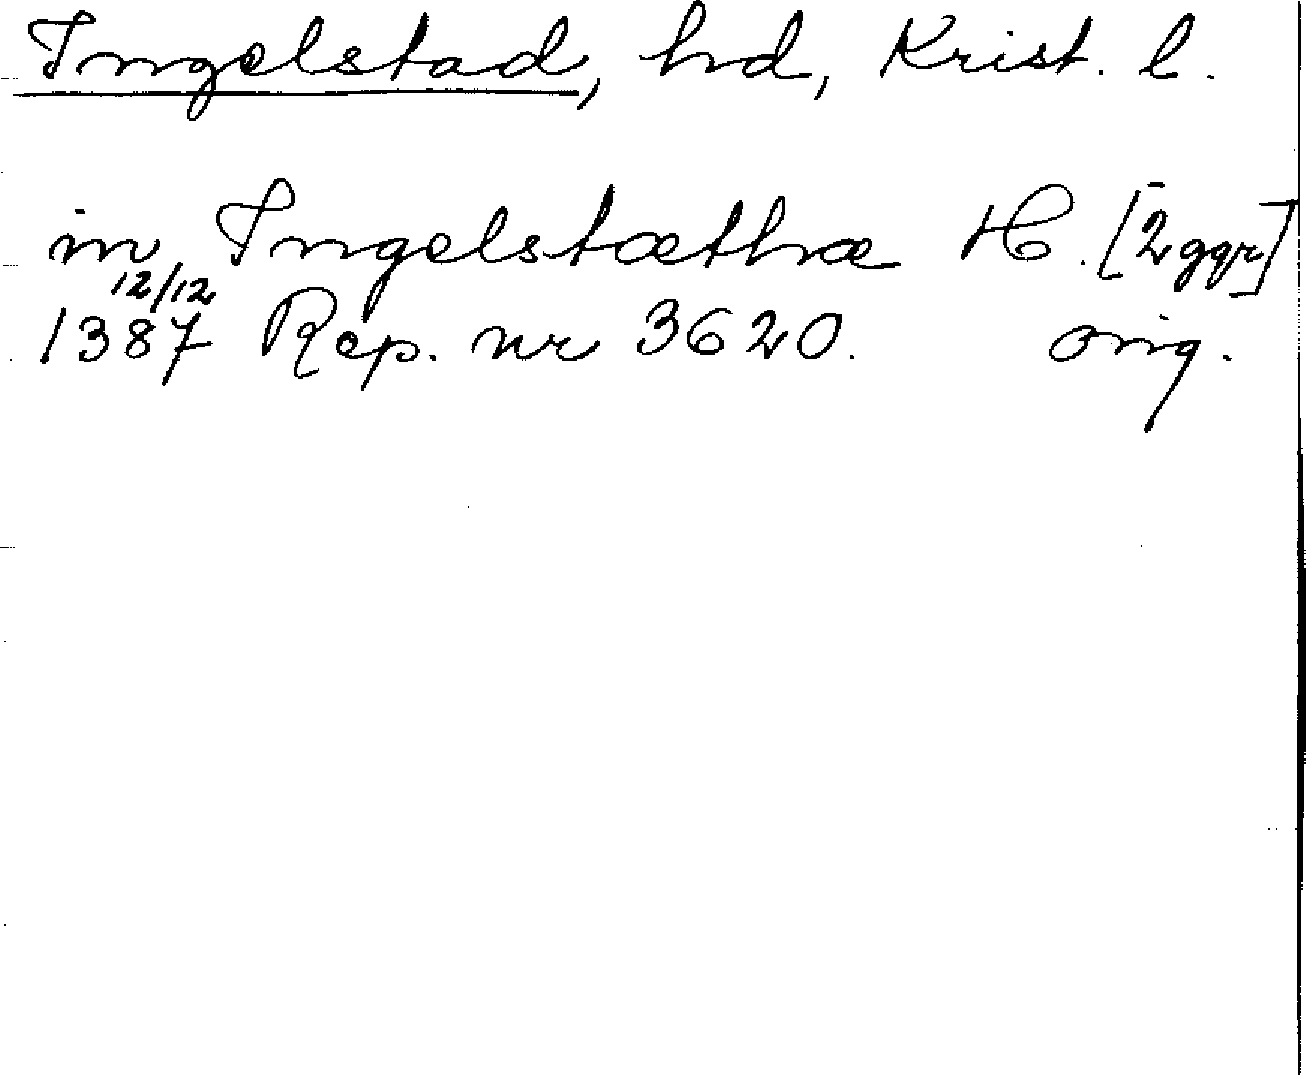 Ingelstad, hd, Krist. l.
in Ingelstæthæ H. [2ggr]
12/12
1387 Rep. nr 3620. orig.